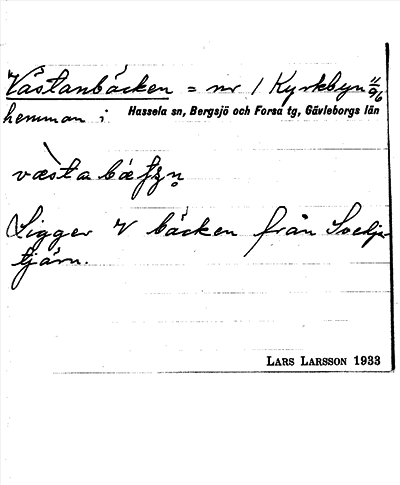 Västanbäcken = nr 1 Kyrkbyn 11/96
hemman i Hassela sn, Bergsjö och Forsa tg, Gävleborgs län
Ligger V bäcken från Svedje
tjärn.
LARS LARSSON 1933